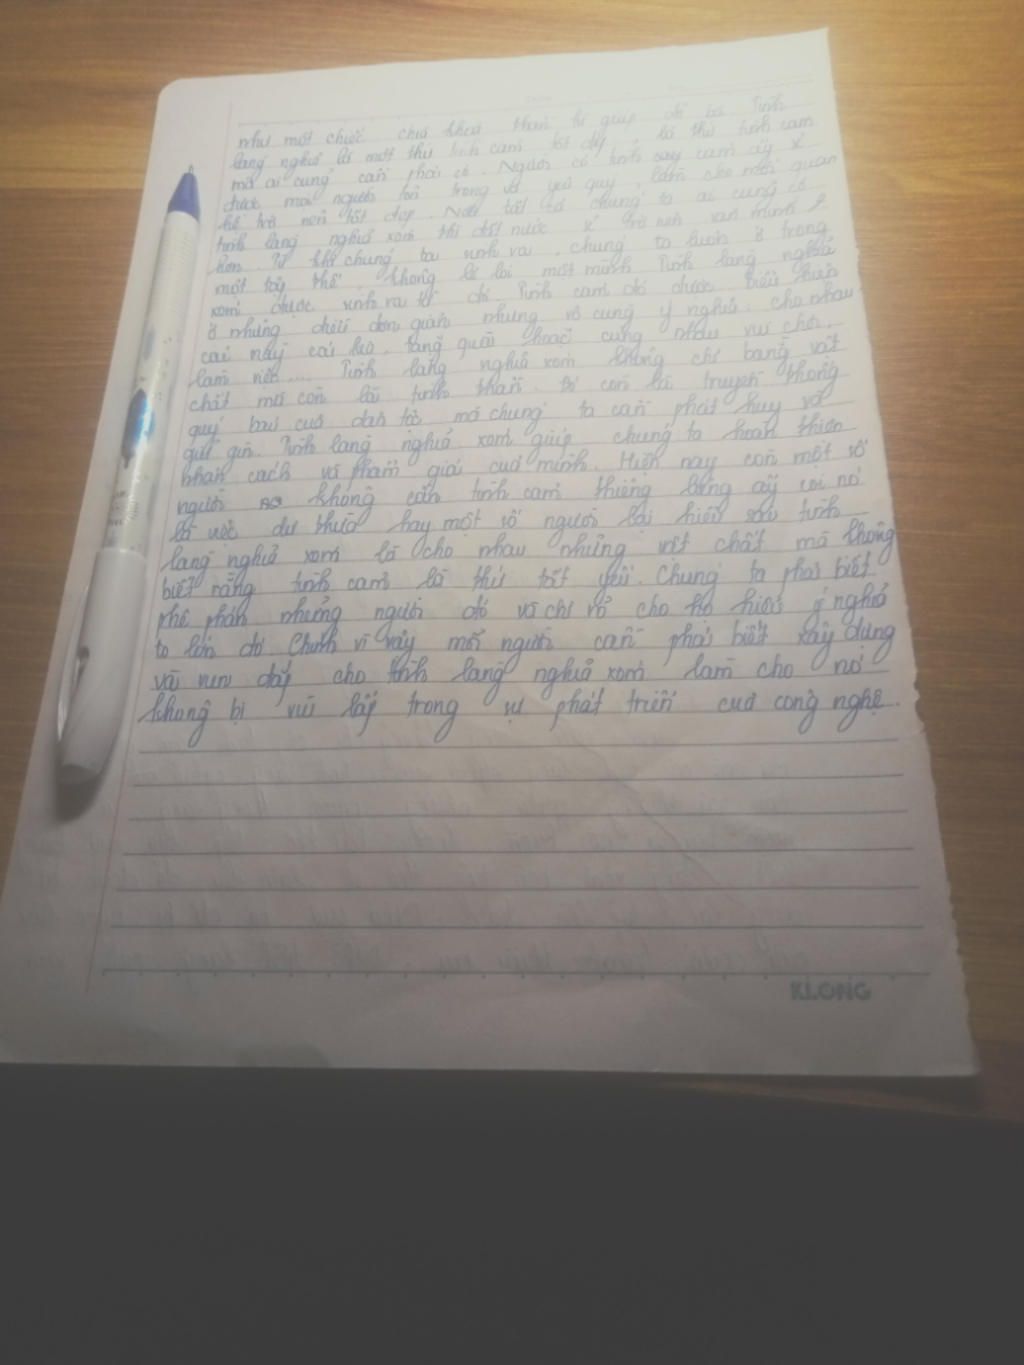 như một chiếc chìa khoá thần kì giúp đỡ bà. Tình
làng nghĩa là một thứ tình cảm tốt đẹp, là thứ tình cảm
mà ai cũng cần phải có. Người có tình cảm ấy sẽ
được mọi người tôn trọng và yêu quý, làm cho mối quan
hệ trở nên tốt đẹp. Nếu tất cả chúng ta ai cũng có
tình làng nghĩa xóm thì đất nước sẽ trở nên văn minh
hơn. Từ khi chúng ta sinh ra, chúng ta luôn ở trong
một tập thể, không lẻ loi một mình. Tình làng nghĩa
xóm được sinh ra từ đó. Tình cảm đó được biểu hiện
ở những điều đơn giản nhưng vô cùng ý nghĩa: cho nhau
cái này cái kia, tặng quà hoặc cùng nhau vui chơi,
làm việc.... Tình làng nghĩa xóm không chỉ bằng vật
chất mà còn là tinh thần. Đó còn là truyền thống
quý báu của dân tộc mà chúng ta cần phát huy và
giữ gìn. Tình làng nghĩa xóm giúp chúng ta hoàn thiện
nhân cách và phẩm giá của mình. Hiện nay còn một số
người không cần tình cảm thiêng liêng ấy coi nó
là việc dư thừa hay một số người lại hiểu sai tình
làng nghĩa xóm là cho nhau những vật chất mà không
biết rằng tình cảm là thứ tất yếu. Chúng ta phải biết
phê phán những người đó và chỉ rõ cho họ hiểu ý nghĩa
to lớn đó. Chính vì vậy mỗi người cần phải biết xây dựng
và vun đắp cho tình làng nghĩa xóm làm cho nó
không bị vùi lấp trong sự phát triển của công nghệ.
KLONG